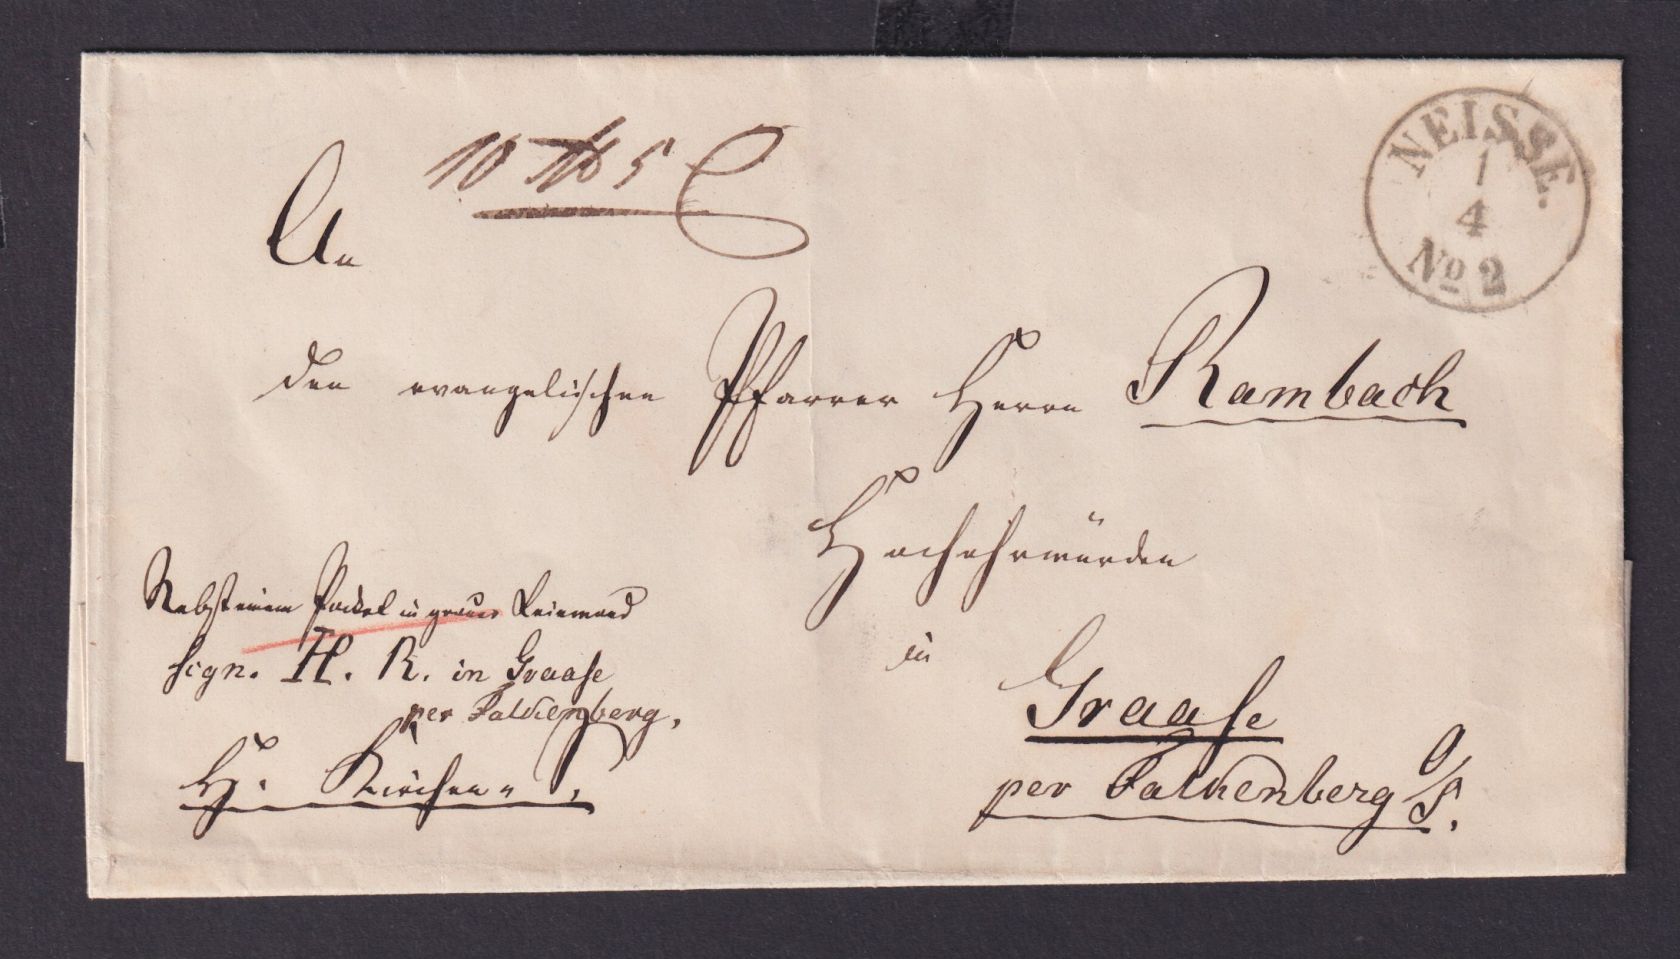 NEISSE.
1
4
No 2
10 ℔ 5
An
den evangelischen Pfarrer Herrn Rambach
Hochehrwürden
in
Graase
per Falkenberg O/S.
Nebst einem Packet in grauer Leinwand
sign. H. R. in Graase
per Falkenberg.
H. Kirchen